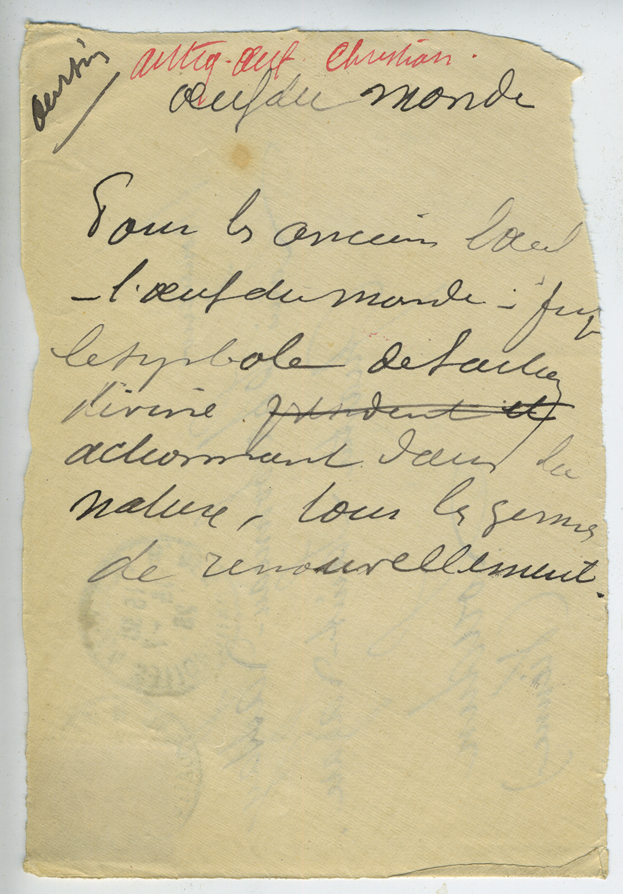 antiq. œuf Christian.
œuf du monde
Pour les anciens l'œuf
— l'œuf du monde —
le symbole de l'action
divine
actionnant dans la
nature, tous les germes
de renouvellement.